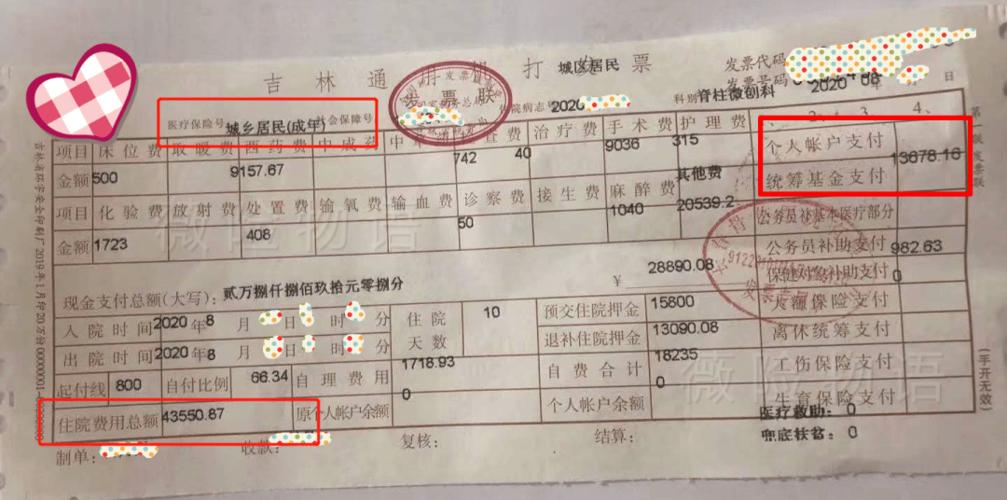 吉林通用机打发票
城区居民
发票代码
发票号码
发票联
医疗保险号 城乡居民(成年) 社会保障号
住院病志号 2020
科别 脊柱微创科
2020 08 年 月 日
项目 床位费 取暖费 西药费 中成药 中草药 检查费 治疗费 手术费 护理费 、 2、 3、 4、
金额 500 9157.67 742 40 9036 315
个人帐户支付
统筹基金支付 13678.16
项目 化验费 放射费 处置费 输氧费 输血费 诊察费 接生费 麻醉费 其他费
金额 1723 408 50 1040 20539.2
公务员补基本医疗部分
公务员补助支付 982.63
现金支付总额(大写): 贰万捌仟捌佰玖拾元零捌分 ¥ 28890.08
保健对象补助支付 0
入院时间 2020 年 8 月 日 时 分 住院天数 10 预交住院押金 15800 大额保险支付
出院时间 2020 年 8 月 日 时 分 退补住院押金 13090.08 离休统筹支付
起付线 800 自付比例 66.34 自理费用 1718.93 自费合计 18235 工伤保险支付
住院费用总额 43550.87 原个人帐户余额 0 个人帐户余额 0 生育保险支付
医疗救助: 0
兜底扶贫: 0
制单: 收款: 复核: 结算:
(手开无效)
薇险物语
薇险物语